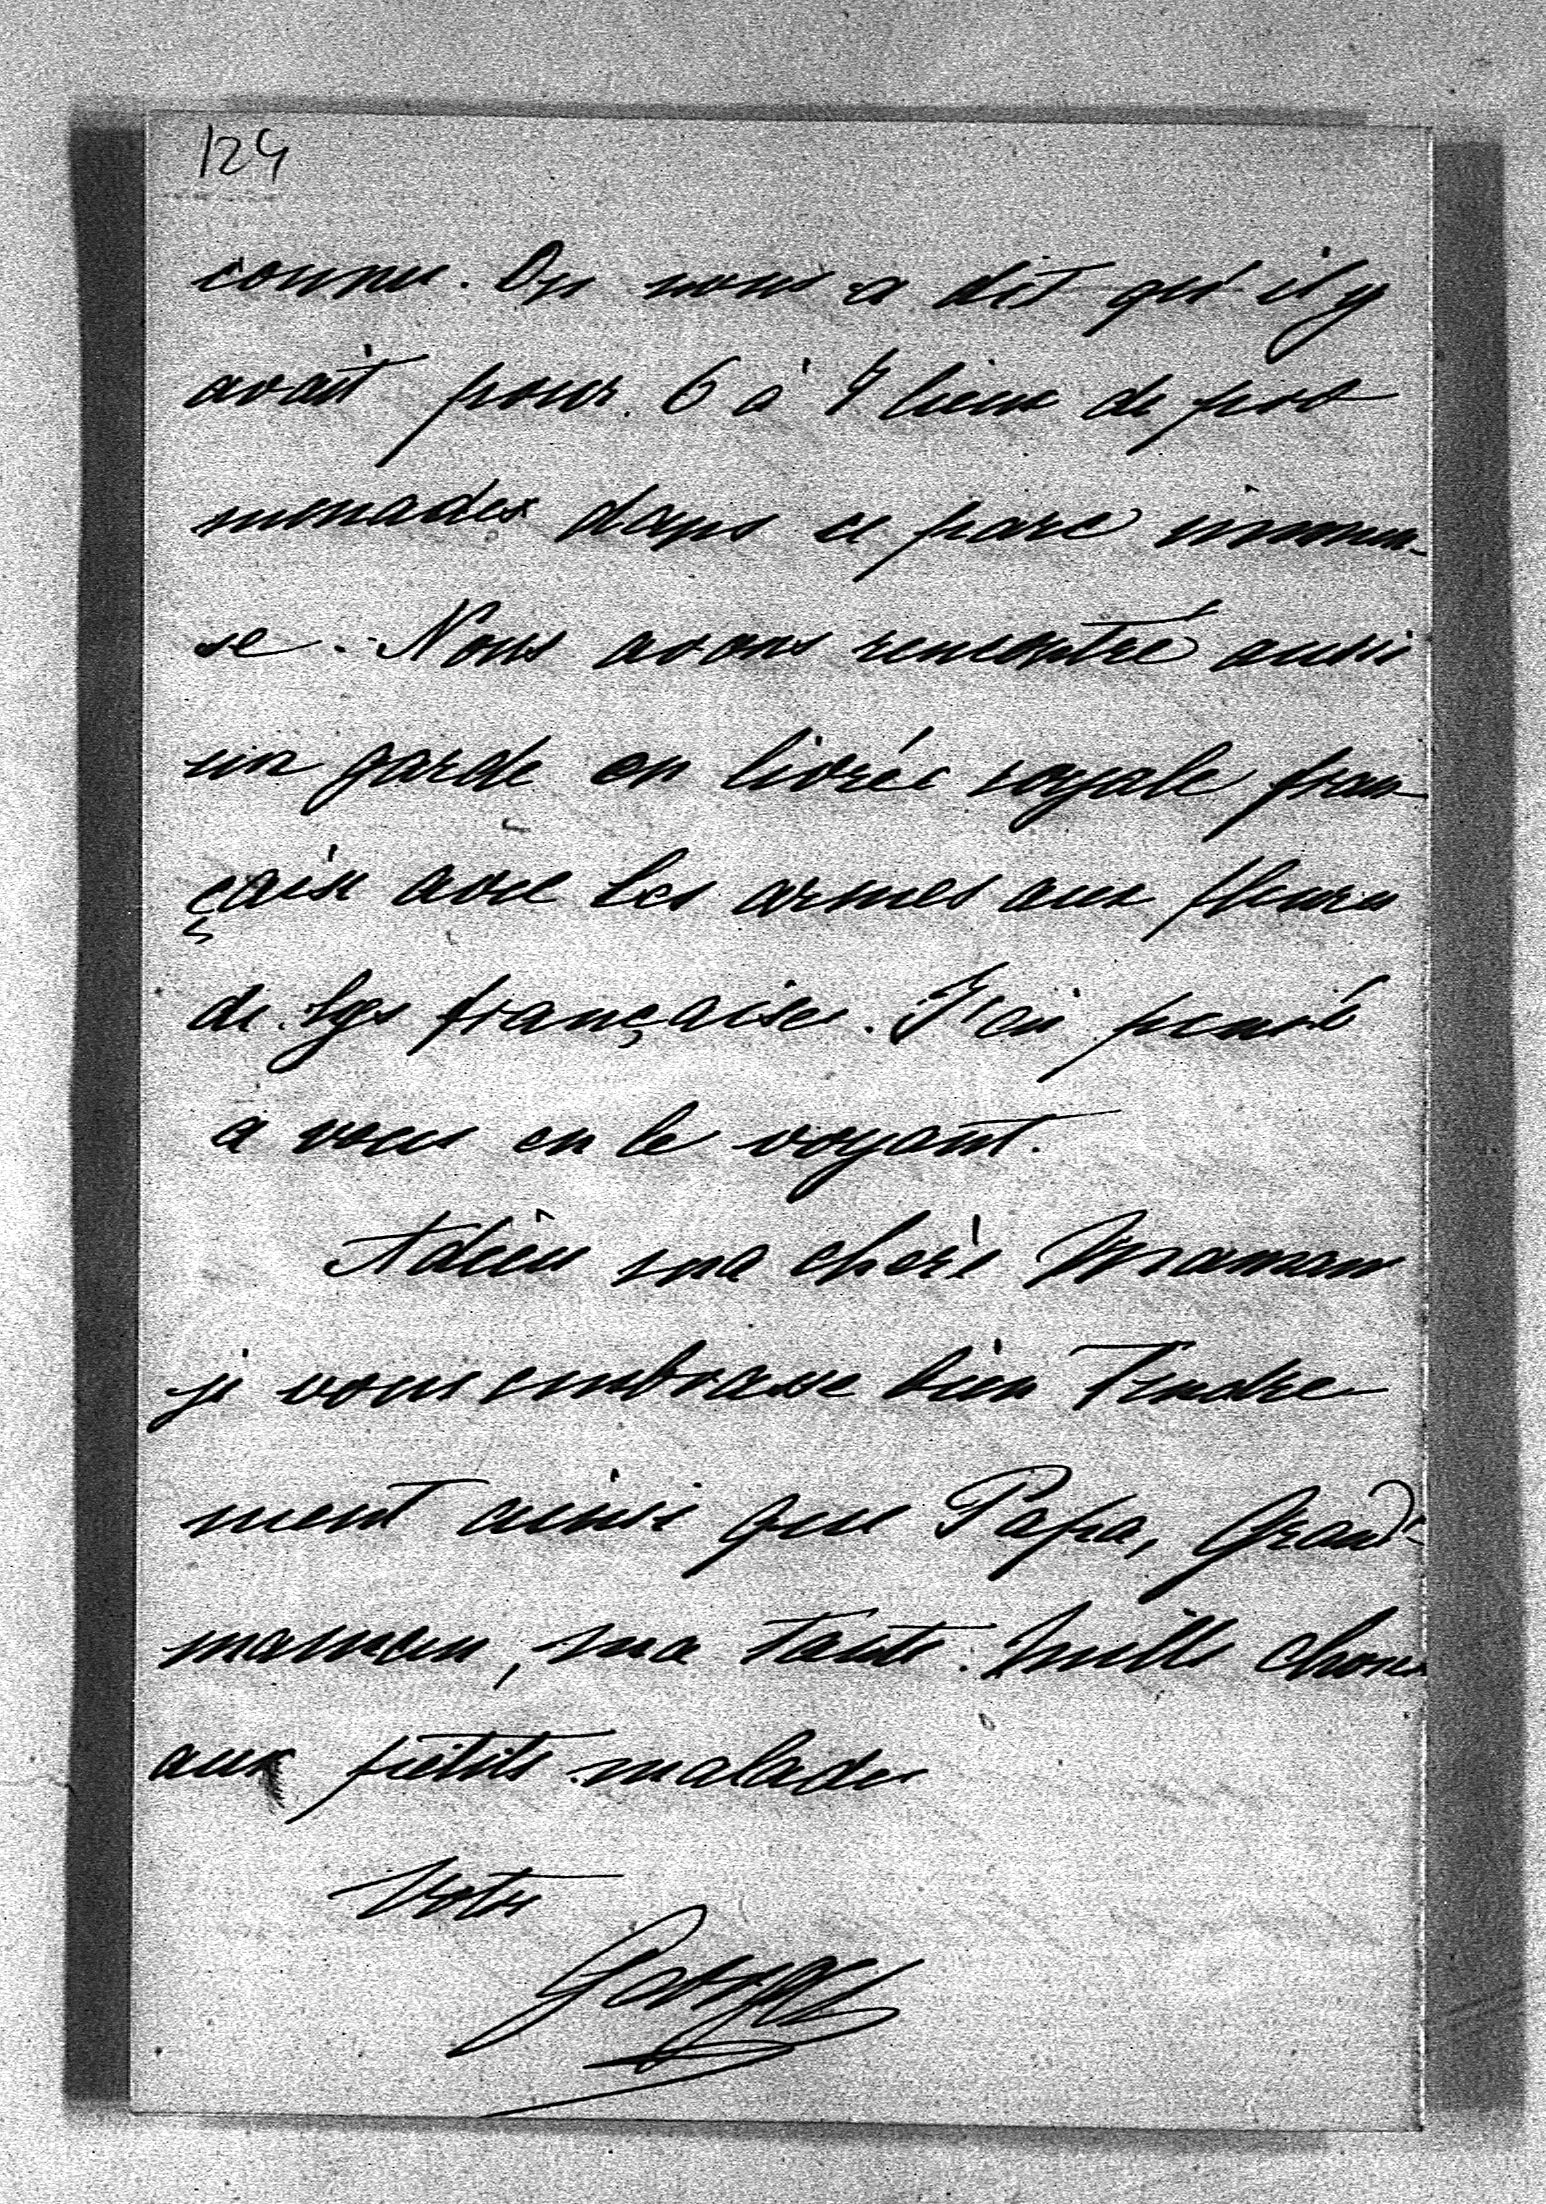 124
connu. On nous a dit qu'il y
avait pour 6 à 7 lieux de pro
menades dans ce parc immen-
se. Nous avons rencontré aussi
un garde en livrée royale fran-
çaise avec les armes aux fleurs
de lys françaises. J'ai pensé
à vous en le voyant.
Adieu ma chère Maman
je vous embrasse bien tendre
ment ainsi que Papa, Grand-
maman, ma tante. Mille choses
aux petits malades
Votre
Georges